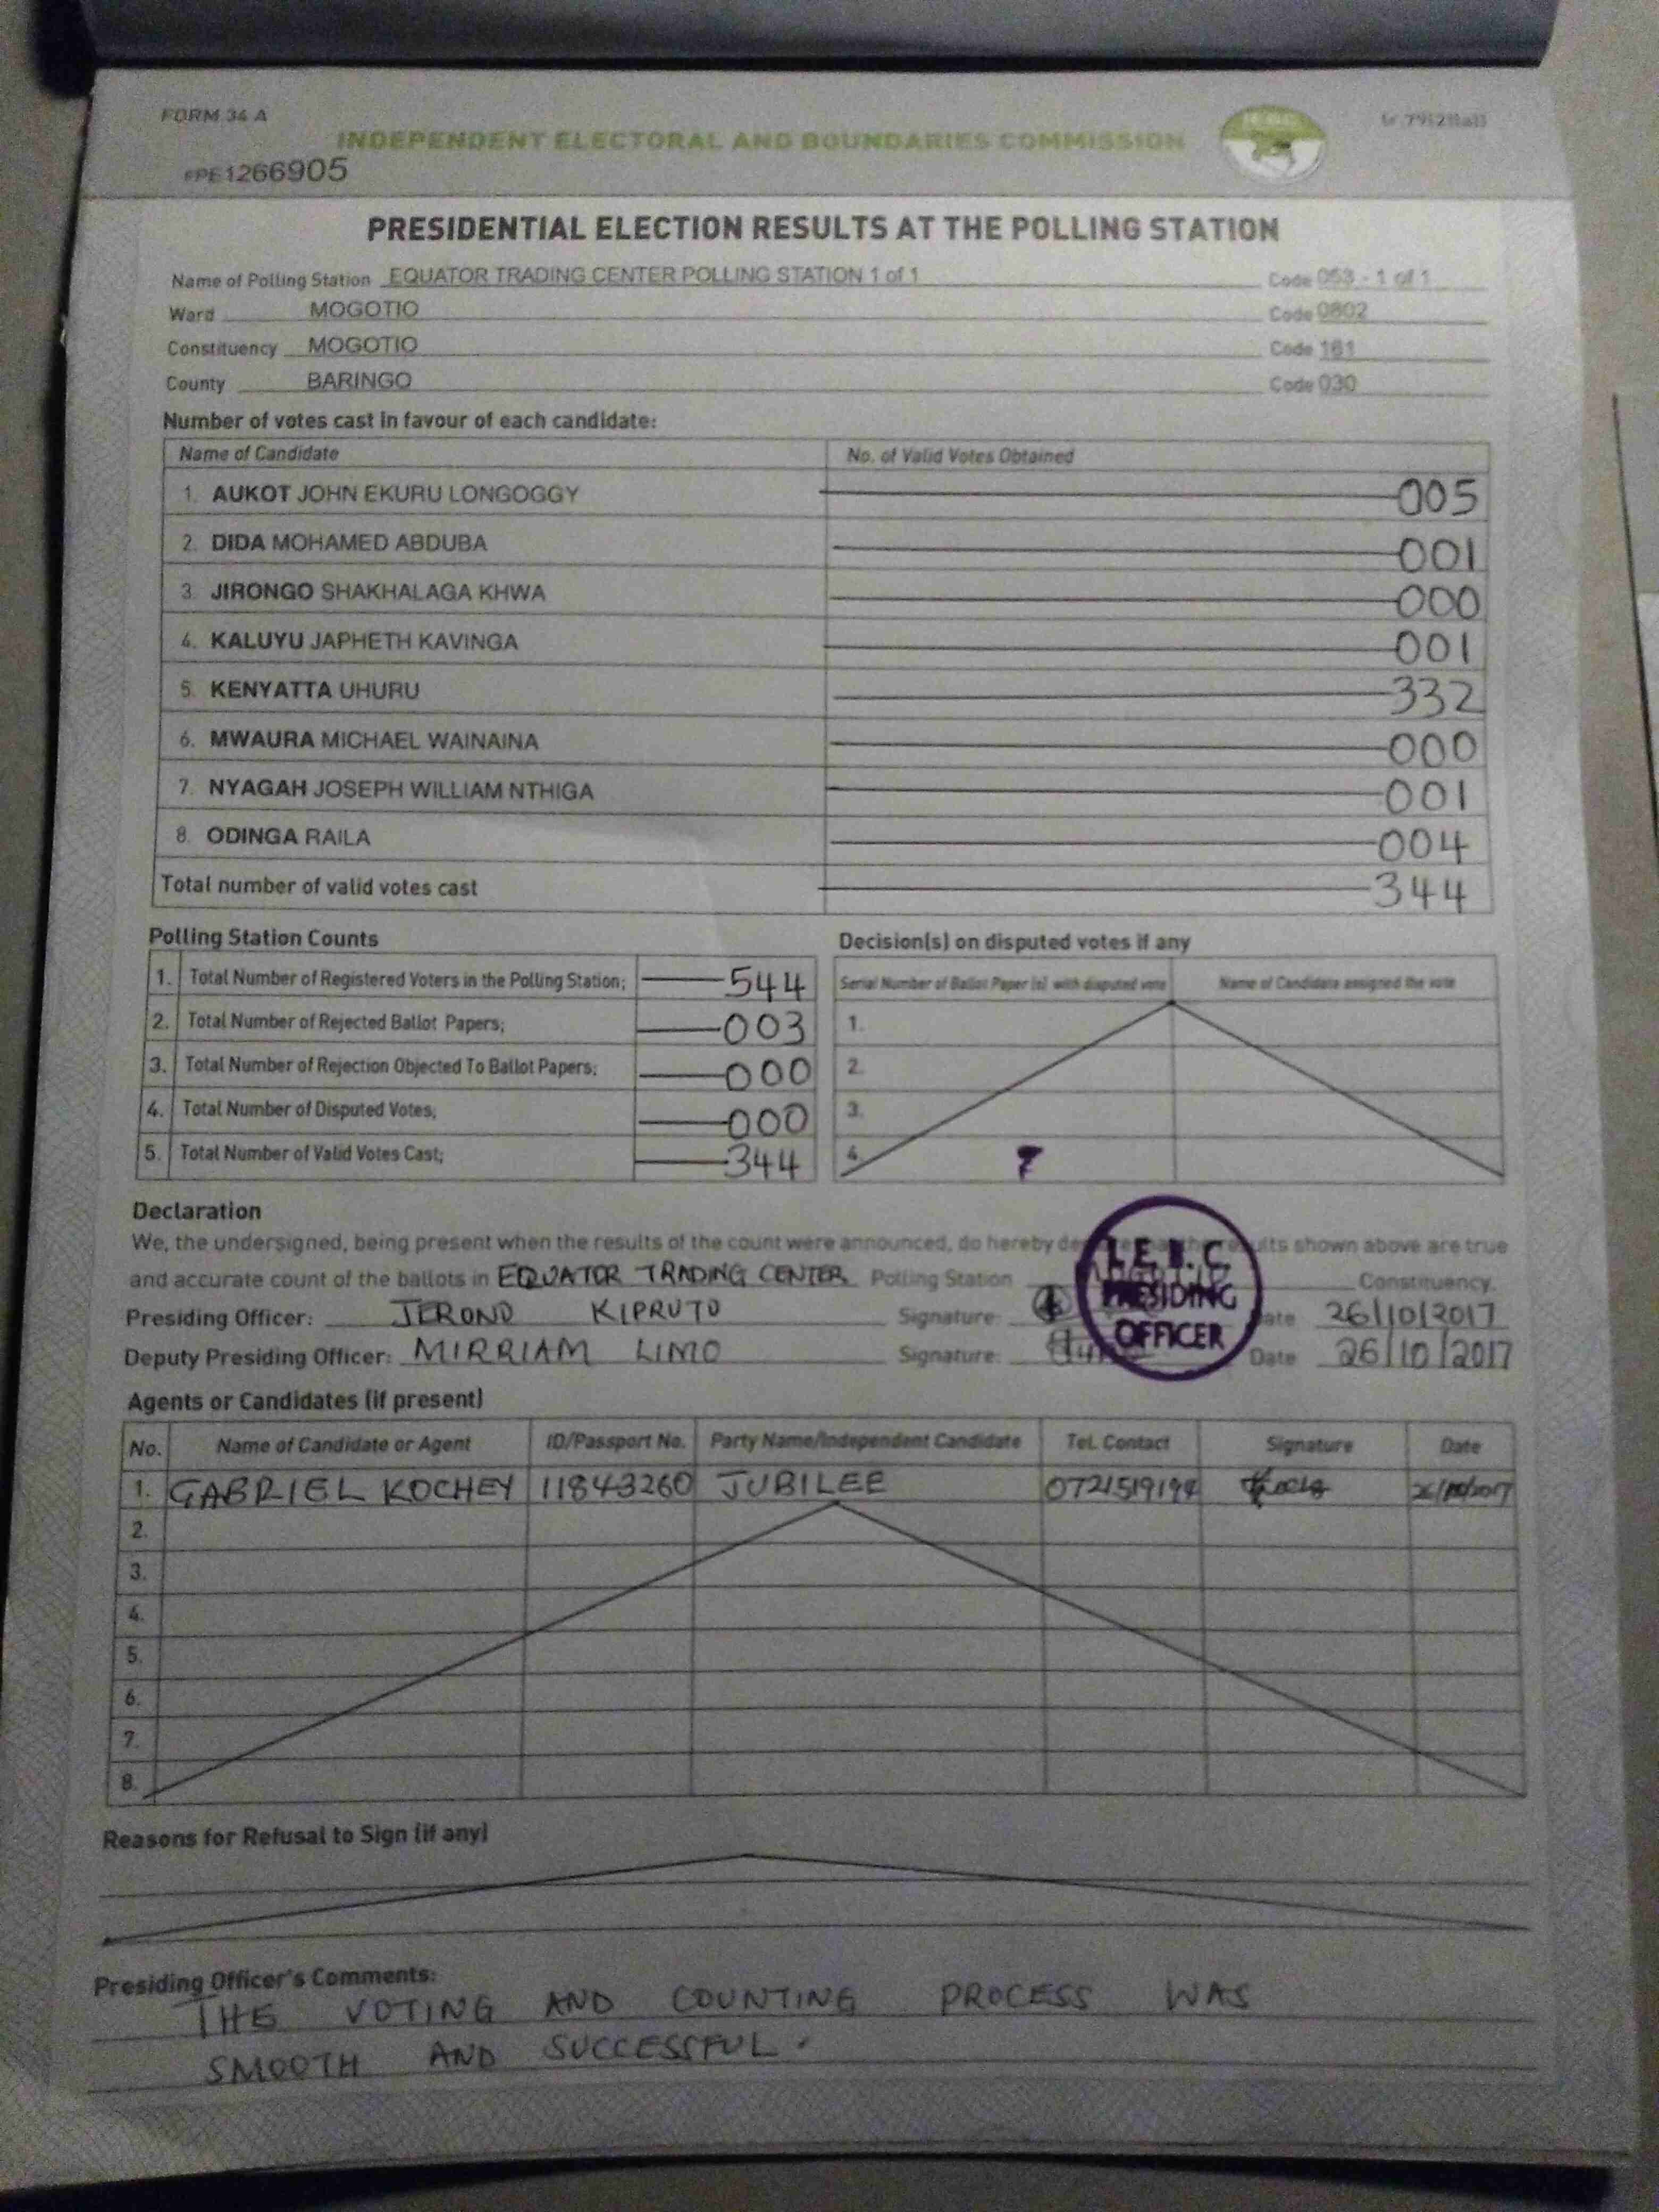 FORM 34 A
INDEPENDENT ELECTORAL AND BOUNDARIES COMMISSION
#PE1266905
PRESIDENTIAL ELECTION RESULTS AT THE POLLING STATION
Name of Polling Station EQUATOR TRADING CENTER POLLING STATION 1 of 1 Code 053 - 1 of 1
Ward MOGOTIO Code 0802
Constituency MOGOTIO Code 161
County BARINGO Code 030
Number of votes cast in favour of each candidate:
Name of Candidate No. of Valid Votes Obtained
1. AUKOT JOHN EKURU LONGOGGY 005
2. DIDA MOHAMED ABDUBA 001
3. JIRONGO SHAKHALAGA KHWA 000
4. KALUYU JAPHETH KAVINGA 001
5. KENYATTA UHURU 332
6. MWAURA MICHAEL WAINAINA 000
7. NYAGAH JOSEPH WILLIAM NTHIGA 001
8. ODINGA RAILA 004
Total number of valid votes cast 344
Polling Station Counts
1. Total Number of Registered Voters in the Polling Station; 544
2. Total Number of Rejected Ballot Papers; 003
3. Total Number of Rejection Objected To Ballot Papers; 000
4. Total Number of Disputed Votes; 000
5. Total Number of Valid Votes Cast; 344
Decision(s) on disputed votes if any
Serial Number of Ballot Paper (s) with disputed vote Name of Candidate assigned the vote
1.
2.
3.
4.
Declaration
We, the undersigned, being present when the results of the count were announced, do hereby shown above are true
and accurate count of the ballots in EQUATOR TRADING CENTER Polling Station Constituency.
Presiding Officer: JEROND KIPRUTO Signature: Date 26/10/2017
Deputy Presiding Officer: MIRRIAM LIMO Signature: Date 26/10/2017
I.E.B.C.
PRESIDING
OFFICER
Agents or Candidates (if present)
No. Name of Candidate or Agent ID/Passport No. Party Name/Independent Candidate Tel. Contact Signature Date
1. GABRIEL KOCHEY 11843260 JUBILEE 0721519194 26/10/2017
2.
3.
4.
5.
6.
7.
8.
Reasons for Refusal to Sign (if any)
Presiding Officer's Comments:
THE VOTING AND COUNTING PROCESS WAS
SMOOTH AND SUCCESSFUL.